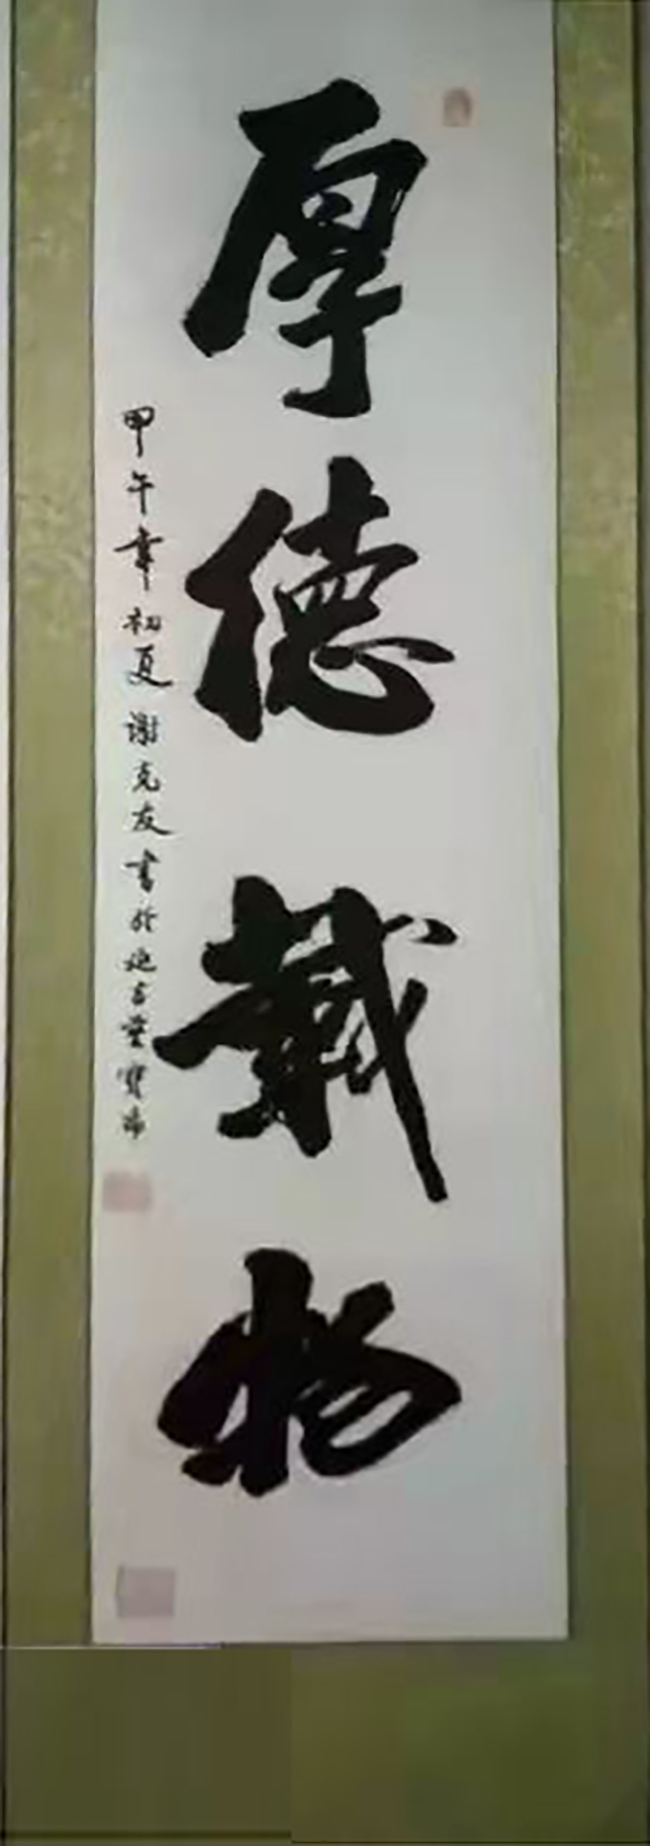 厚德載物
甲午年初夏 谢克友書於延吉